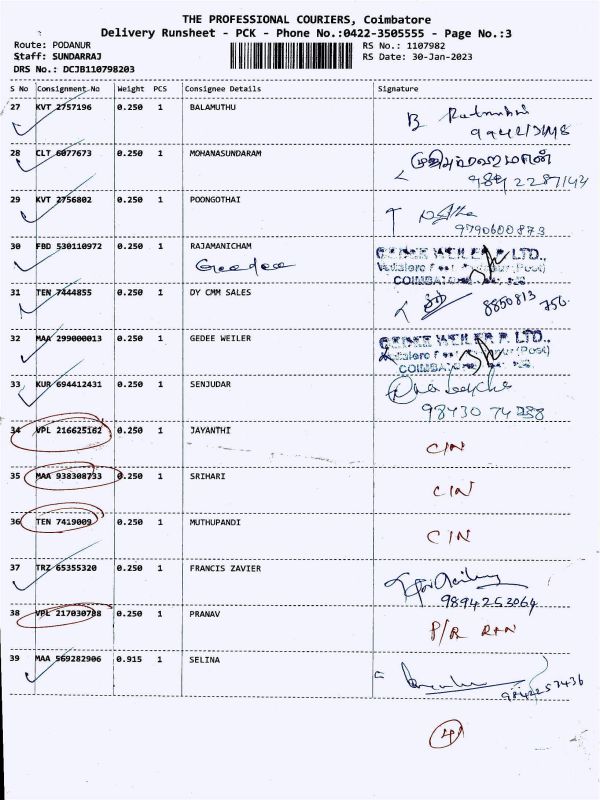 THE PROFESSIONAL COURIERS, Coimbatore
Delivery Runsheet - PCK - Phone No.:0422-3505555 - Page No.:3
Route: PODANUR RS No.: 1107982
Staff: SUNDARRAJ RS Date: 30-Jan-2023
DRS No.: DCJB110798203
S No Consignment No Weight PCS Consignee Details Signature
27 KVT 2757196 0.250 1 BALAMUTHU B
28 CLT 6077673 0.250 1 MOHANASUNDARAM
29 KVT 2756802 0.250 1 POONGOTHAI
9790600873
30 FBD 530110972 0.250 1 RAJAMANICHAM GEDEE WEILER P. LTD.,
Geedee
31 TEN 7444855 0.250 1 DY CMM SALES 8850813 756
32 MAA 299000013 0.250 1 GEDEE WEILER GEDEE WEILER P. LTD.,
33 KUR 694412431 0.250 1 SENJUDAR
98430 74288
34 VPL 216625162 0.250 1 JAYANTHI C/N
35 MAA 938308733 0.250 1 SRIHARI C/N
36 TEN 7419009 0.250 1 MUTHUPANDI C/N
37 TRZ 65355320 0.250 1 FRANCIS ZAVIER
9894253064
38 VPL 217030788 0.250 1 PRANAV P/R
39 MAA 569282906 0.915 1 SELINA
9842257436
4